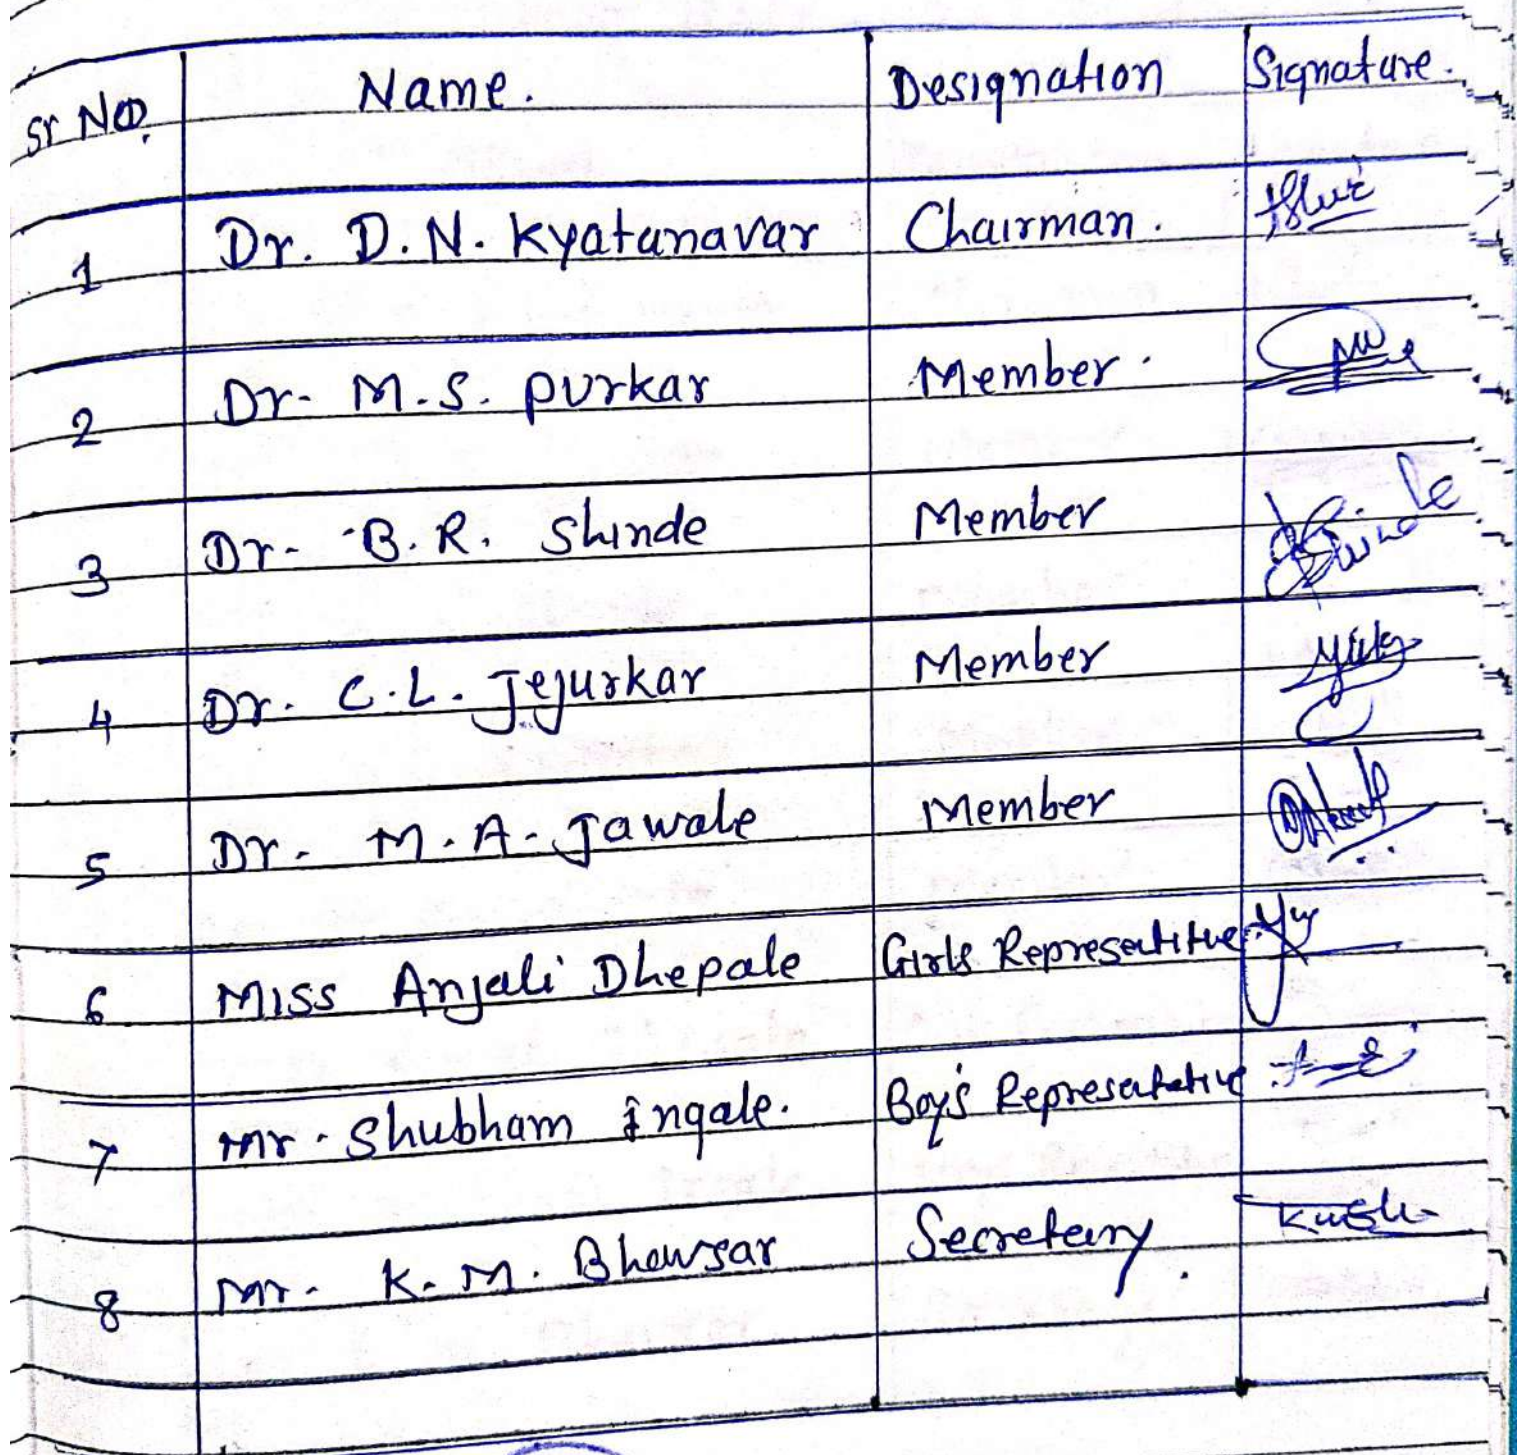 Sr No. Name. Designation Signature.
1 Dr. D. N. Kyatanavar Chairman.
2 Dr. M.S. Purkar Member.
3 Dr. B. R. Shinde Member Shinde
4 Dr. C.L. Jejurkar Member
5 Dr. M.A. Jawale Member
6 Miss Anjali Dhepale Girls Representitive
7 Mr. Shubham Ingale. Boy's Representative
8 Mr. K. M. Bhawsar Secretary.